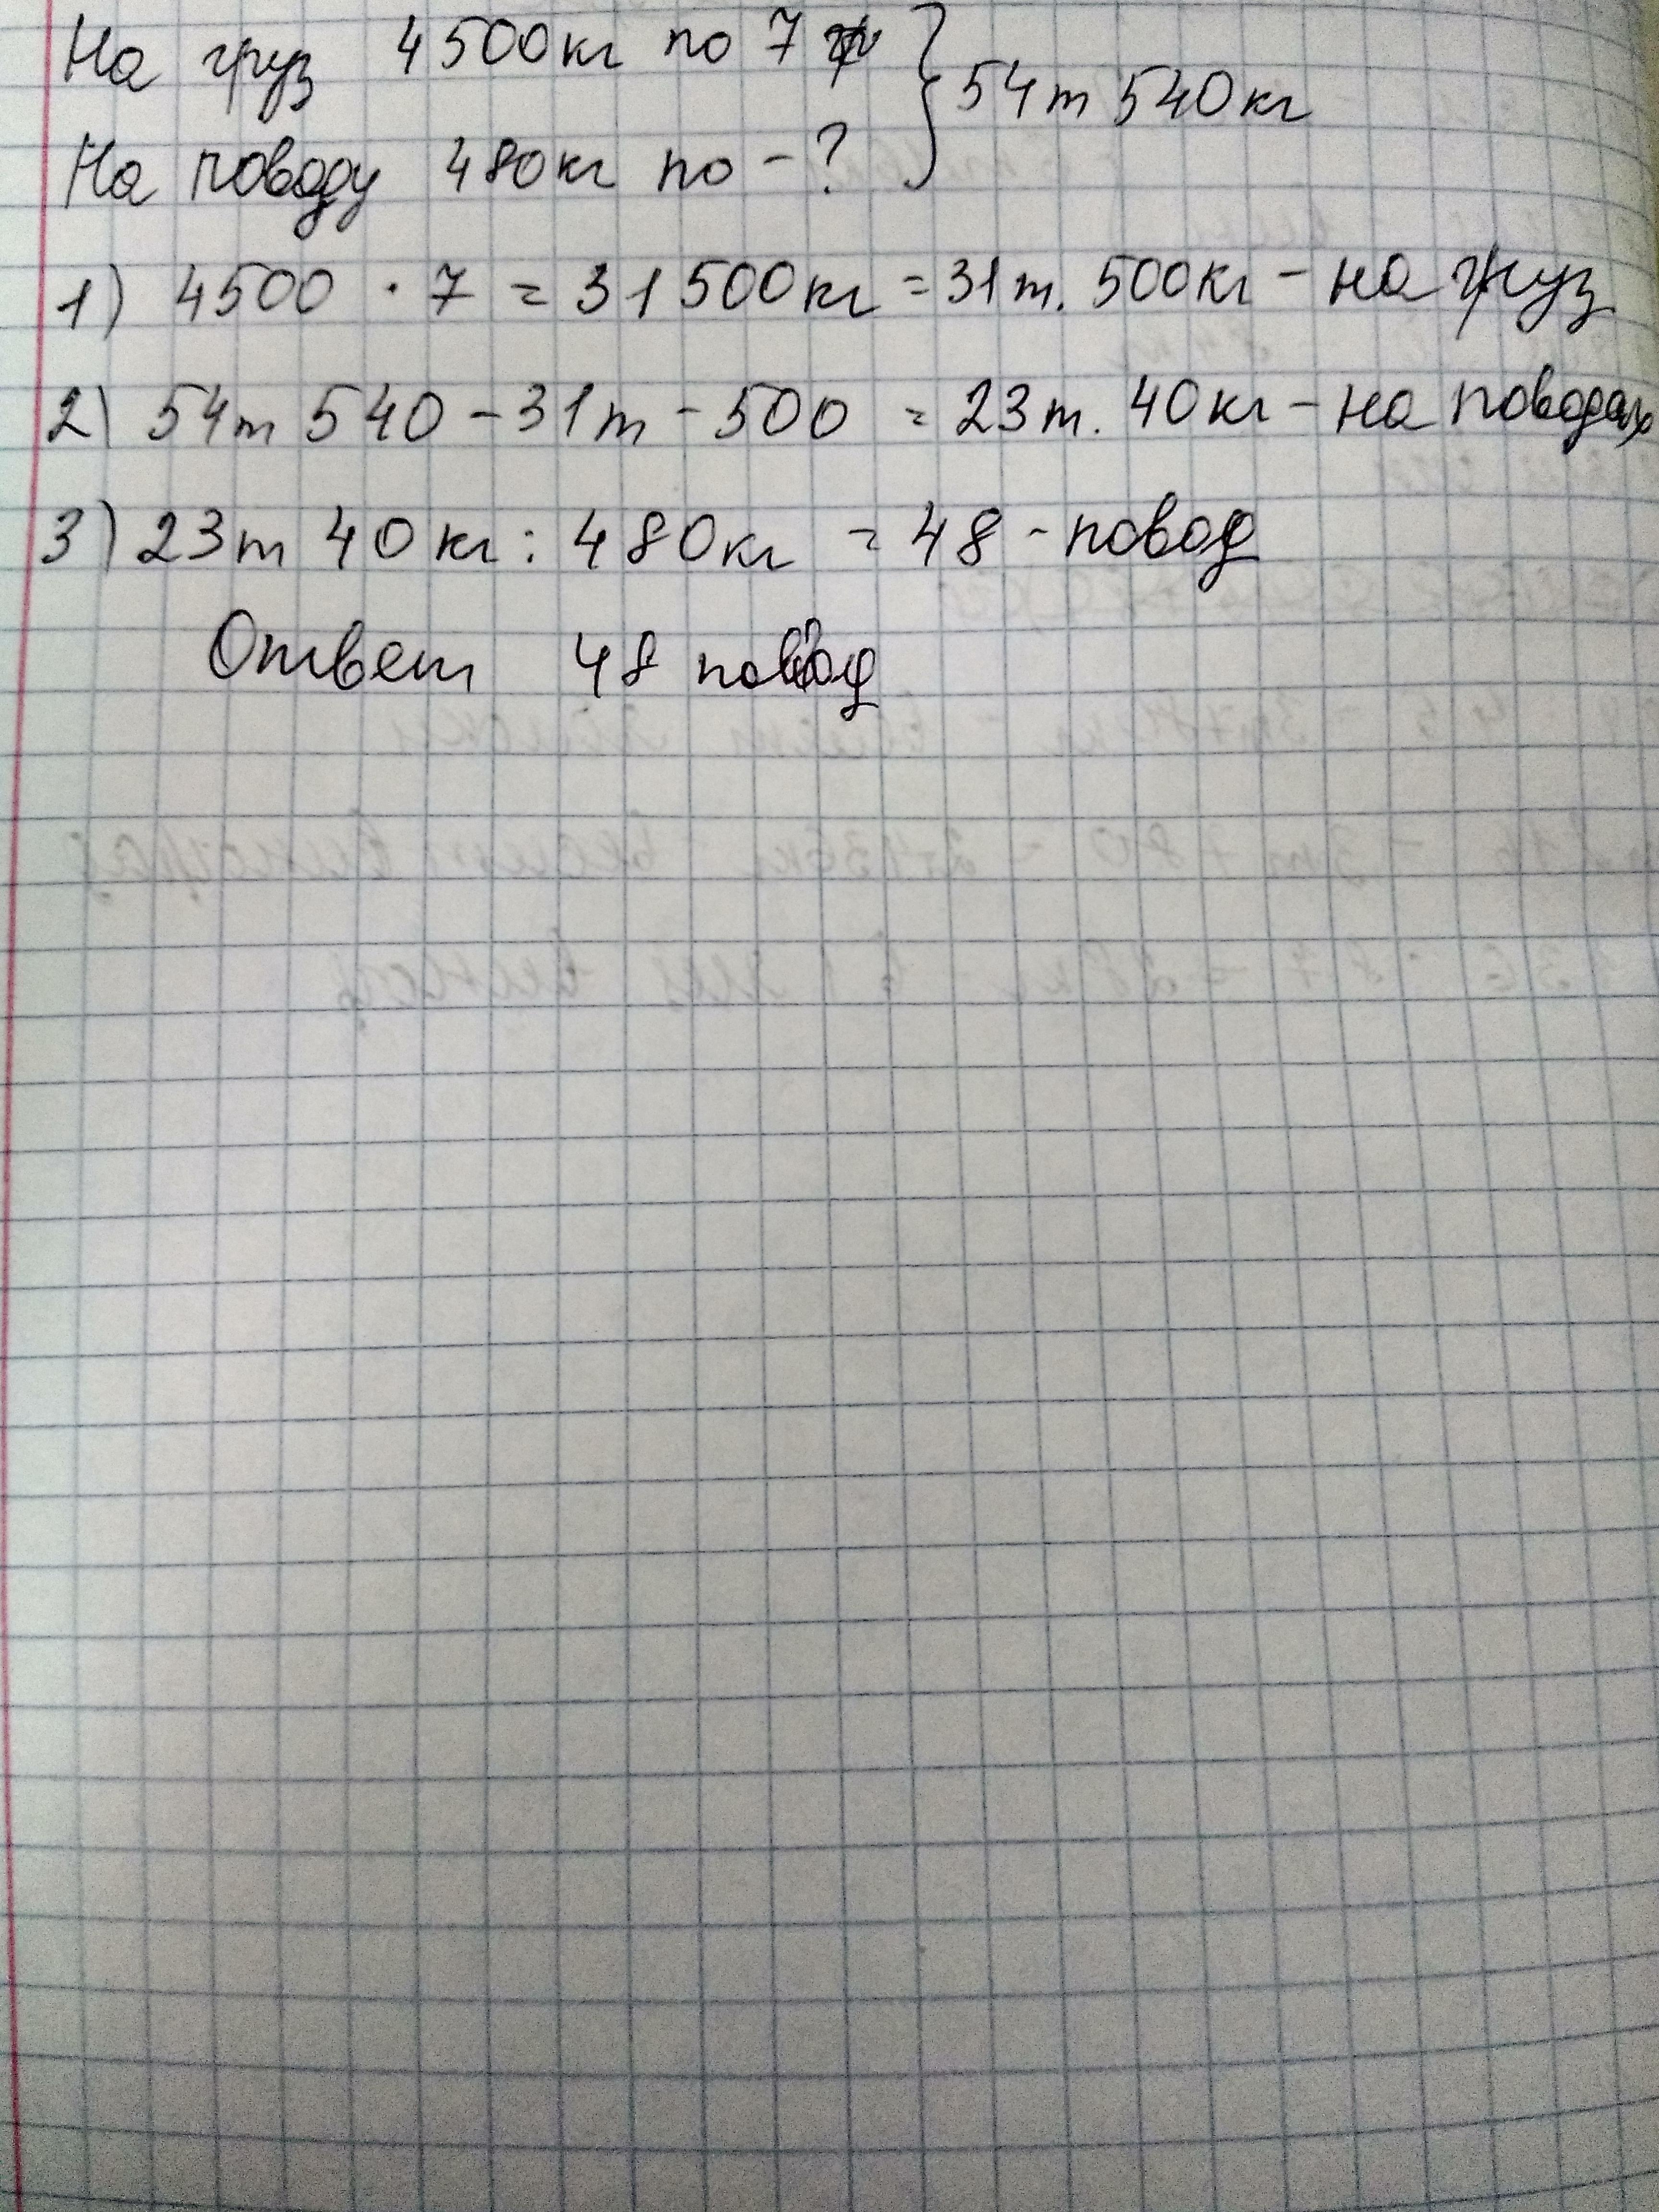 На груз 4500кг по 7
На поводу 480кг по - ?
} 54т 540кг
1) 4500 · 7 = 31500кг = 31т. 500кг - на груз
2) 54т 540 - 31т - 500 = 23т. 40кг - на поводах
3) 23т 40кг : 480кг = 48 - повод
Ответ 48 повод